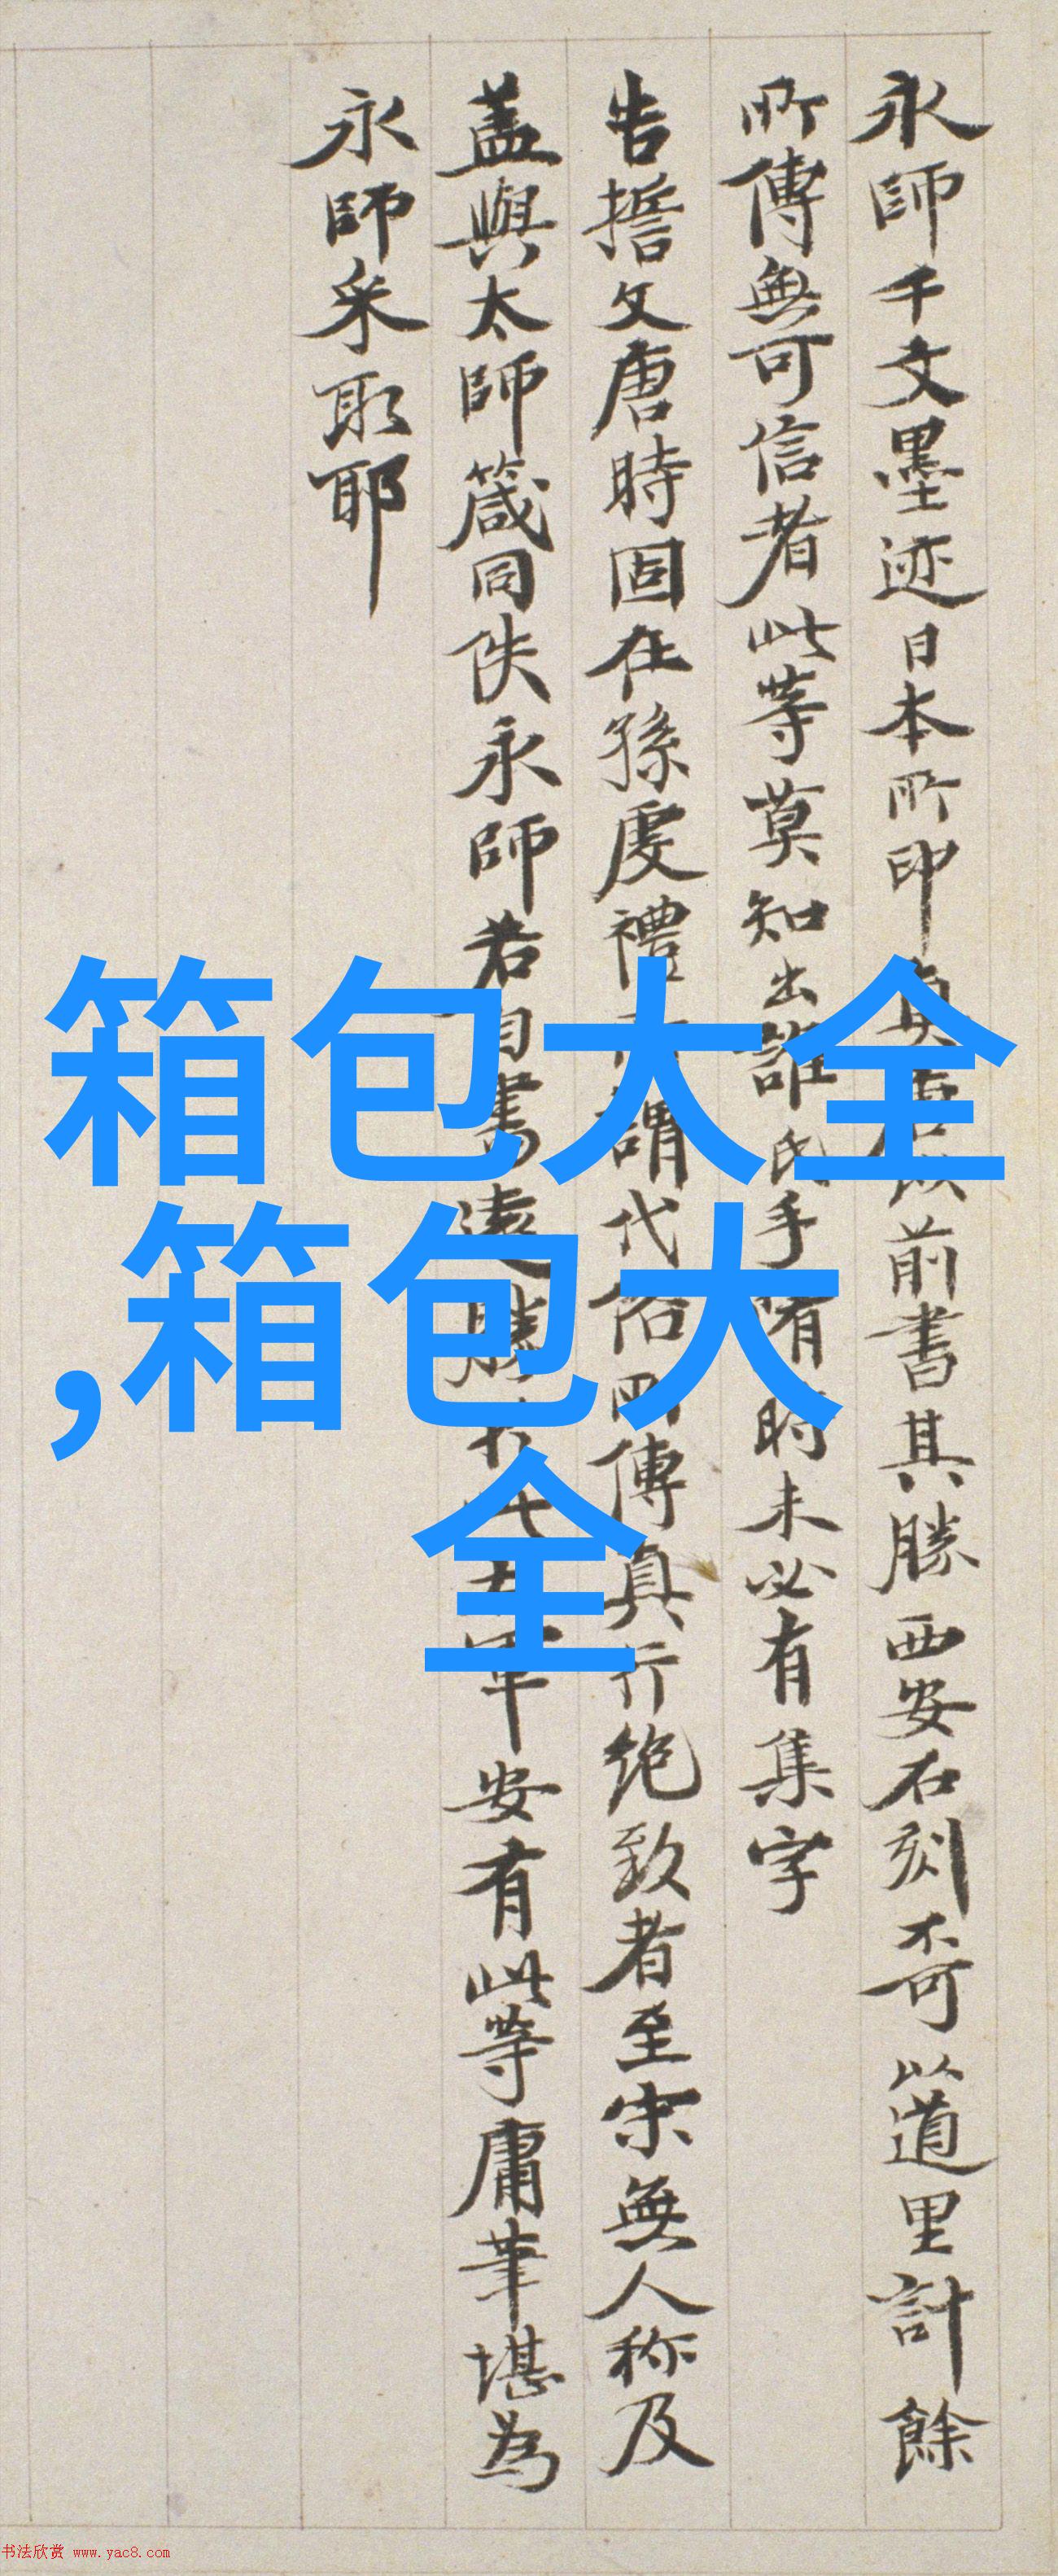 永師千文墨迹日本所印真前書其勝西安石刻不可以道里計餘
所傳無可信者此等莫知出誰氏手時未必有集字
告誓文唐時固在孫虔禮謂代俗所傳真行絶致者至宋無人称及
盖與太師箴同佚永師若自書遠勝軍安有此等庸筆堪為
永師采取耶
箱包大全
,箱包大
全
书法欣赏 www.yac8.com